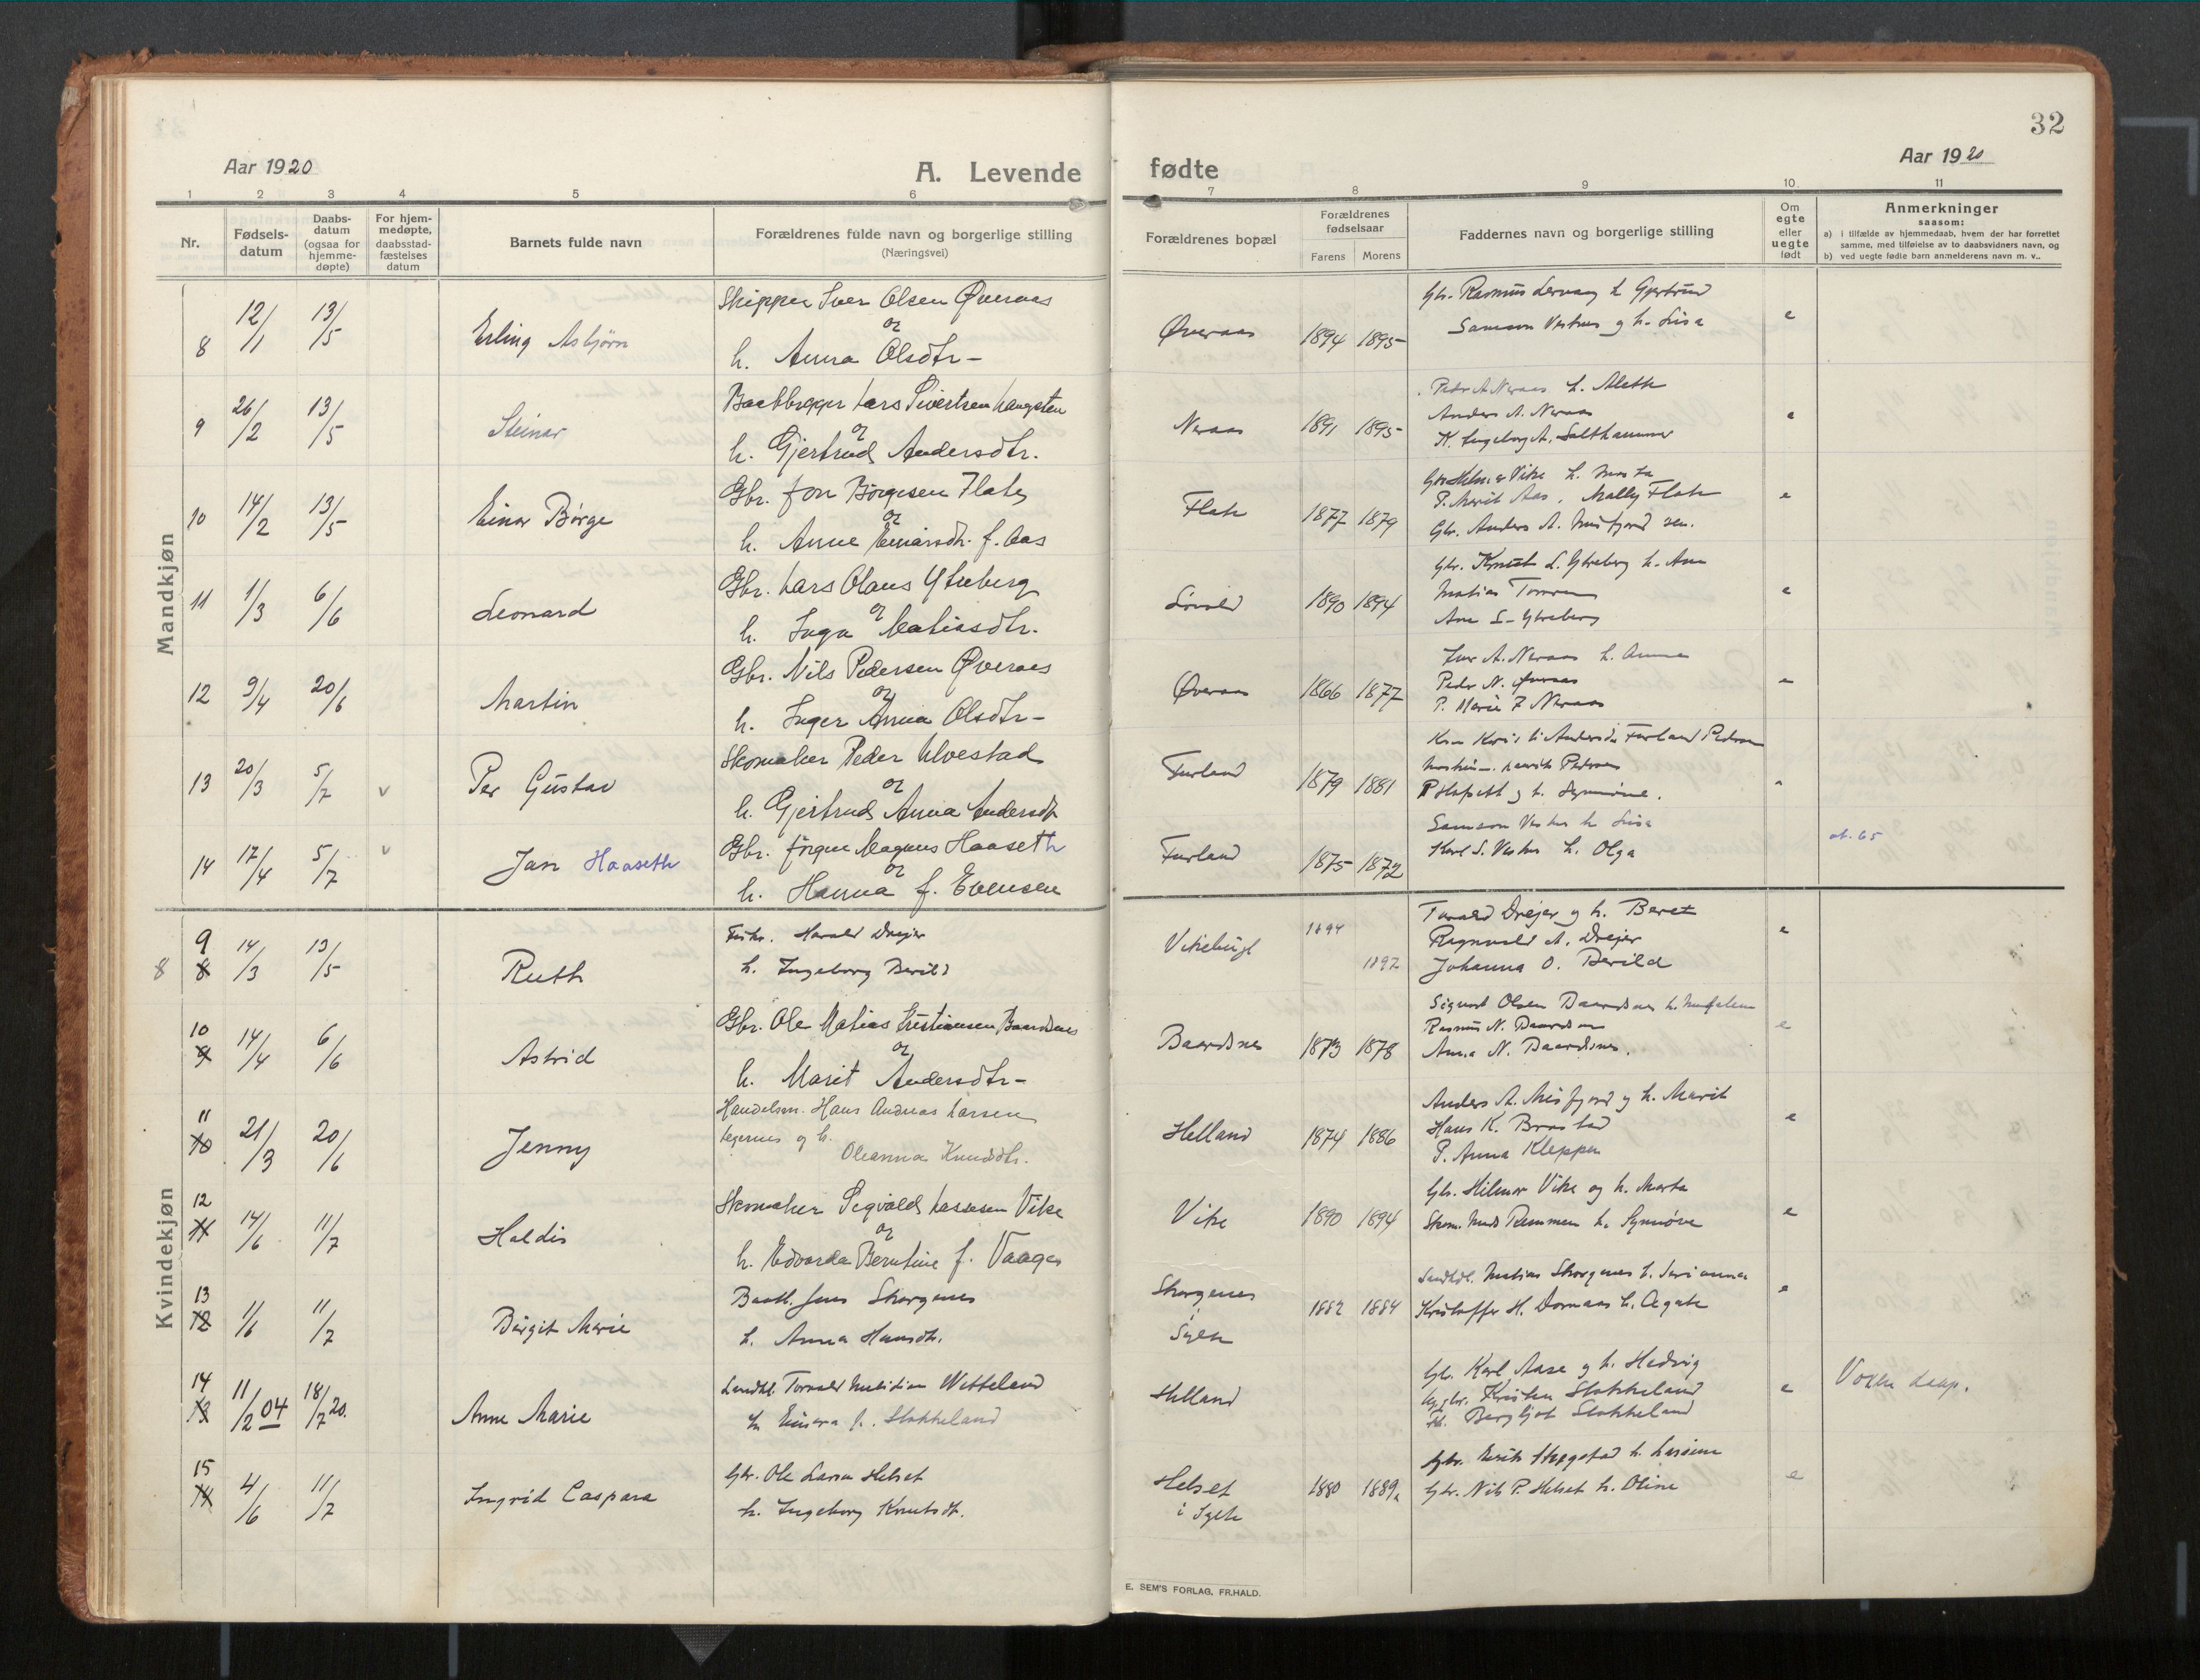 32
Aar 1920
A. Levende
fødte
Aar 1920
1 2 3 4 5 6 7 8 9 10. 11
Nr.
Fødsels-
datum
Daabs-
datum
(ogsaa for
hjemme-
døpte)
For hjem-
medøpte,
daabsstad-
fæstelses
datum
Barnets fulde navn
Forældrenes fulde navn og borgerlige stilling
(Næringsvei)
Forældrenes bopæl
Forældrenes
fødselsaar
Farens Morens
Faddernes navn og borgerlige stilling
Om
egte
eller
uegte
født
Anmerkninger
saasom:
a) i tilfælde av hjemmedaab, hvem der har forrettet
samme, med tilføielse av to daabsvidners navn, og
b) ved uegte fødte barn anmelderens navn m. v..
Mandkjøn
8 12/1 13/5 Erling Asbjørn
Skipper Iver Olsen Øveraas
og
h. Anna Olsdtr-
Øveraas 1894 1895
Gbr. Rasmus h Gjertrud
Samson Vestnes og h. Lisa
e
9 26/2 13/5 Steinar
Baatbygger Lars Sivertsen Langsten
og
h. Gjertrud Andersdtr.
Neraas 1891 1895
Peder A Neraas h. Alette
Anders A. Neraas
K. Ingeborg A. Salthammer
e
10 14/2 13/5 Einar Børge
Gbr. Jon Børgesen Flate
og
h. Anne Einarsdtr. f. Aas
Flate 1877 1879
Vike h. Marta
P. Marit Aas, Mally Flate
Gbr. Anders A. Misfjord sen.
e
11 1/3 6/6 Leonard
Gbr. Lars Olaus Ytreberg
og
h. Inga Matiasdtr.
1890 1894
Gbr. Knut L. Ytreberg h. Ane
Matias
Ane L. Ytreberg
e
12 9/4 20/6 Martin
Gbr. Nils Pedersen Øveraas
og
h. Inger Anna Olsdtr-
Øveraas 1866 1877
Iver A. Neraas h. Anna
Peder N. Øveraas
P. Marie I Neraas
e
13 20/3 5/7 v Per Gustav
Skomaker Peder Ulvestad
og
h. Gjertrud Anna Andersdtr
Furland 1879 1881
Furland Pedersen
Pedersen
P Hofseth og h. Synnøve.
14 17/4 5/7 v Jan Haaseth
Gbr. Jørgen Magnus Haaseth
og
h. Hanna f. Evensen
Furland 1875 1872
Samson Vestnes h Lisa
Karl S. Vestnes h. Olga
ut. 65
Kvindekjøn
8 9 8 14/3 13/5 Ruth
Fisker. Harald Drejer
h. Ingeborg Berild
Vikebugt 1894 1892
Torald Drejer og h. Beret
Ragnvald A. Drejer
Johanna O. Berild
e
10 9 14/4 6/6 Astrid
Gbr. Ole Matias Kristiansen Baardsnes
og
h. Marit Andersdtr-
Baardsnes 1873 1878
Sigurd Olsen Baardsnes h.
Rasmus N. Baardsnes
Anna N. Baardsnes.
e
11 10 21/3 20/6 Jenny
Handelsm. Hans Andreas Larsen
Legernes og h.
Oleanna Knudsdtr.
Helland 1874 1886
Anders A. Misfjord og h. Marit
Hans K. Brastad
P. Anna Kleppen
e
12 11 14/6 11/7 Haldis
Skomaker Sigvald Lassesen Vike
og
h. Edvarda Berntine f. Vaagen
Vike 1890 1894
Gbr. Hilmar Vike og h. Marta
Skom. Mads Remmem h. Synnøve
e
13 12 1/6 11/7 Birgit Marie
Baatb. Jens Skorgenes
h. Anna Hansdtr.
Skorgenes
i
Sylte
1882 1884
Landhdl. Matias Skorgenes h.
Kristoffer H. Dornaas h. Agate
e
14 13 11/2 04 18/7 20. Anne Marie
Landhl. Torvald Witteland
h. Einara f. Stokkeland
Helland
Gbr. Karl Aase og h. Hedvig
Kristen Stokkeland
Bergljot Stokkeland
e
Voxen daap.
15 14 4/6 11/7 Ingrid Caspara
Gbr. Ole Larsen Helset
h. Ingeborg Knutsdt.
Helset
i Sylte
1880 1889
Gbr. Skeggstad h.
Gbr. Nils P. Helset h. Oline
e
E. SEM'S FORLAG, FR.HALD.